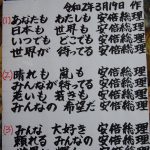 令和2年3月19日 作
(1) あなたも わたしも 安倍総理
日本も 世界も 安倍総理
いつも どこでも 安倍総理
世界が 待ってる 安倍総理
(2) 晴れも 嵐も 安倍総理
みんなが 待ってる 安倍総理
老いも 若きも 安倍総理
みんなの 希望だ 安倍総理
(3) みんな 大好き 安倍総理
頼れる みんなの 安倍総理